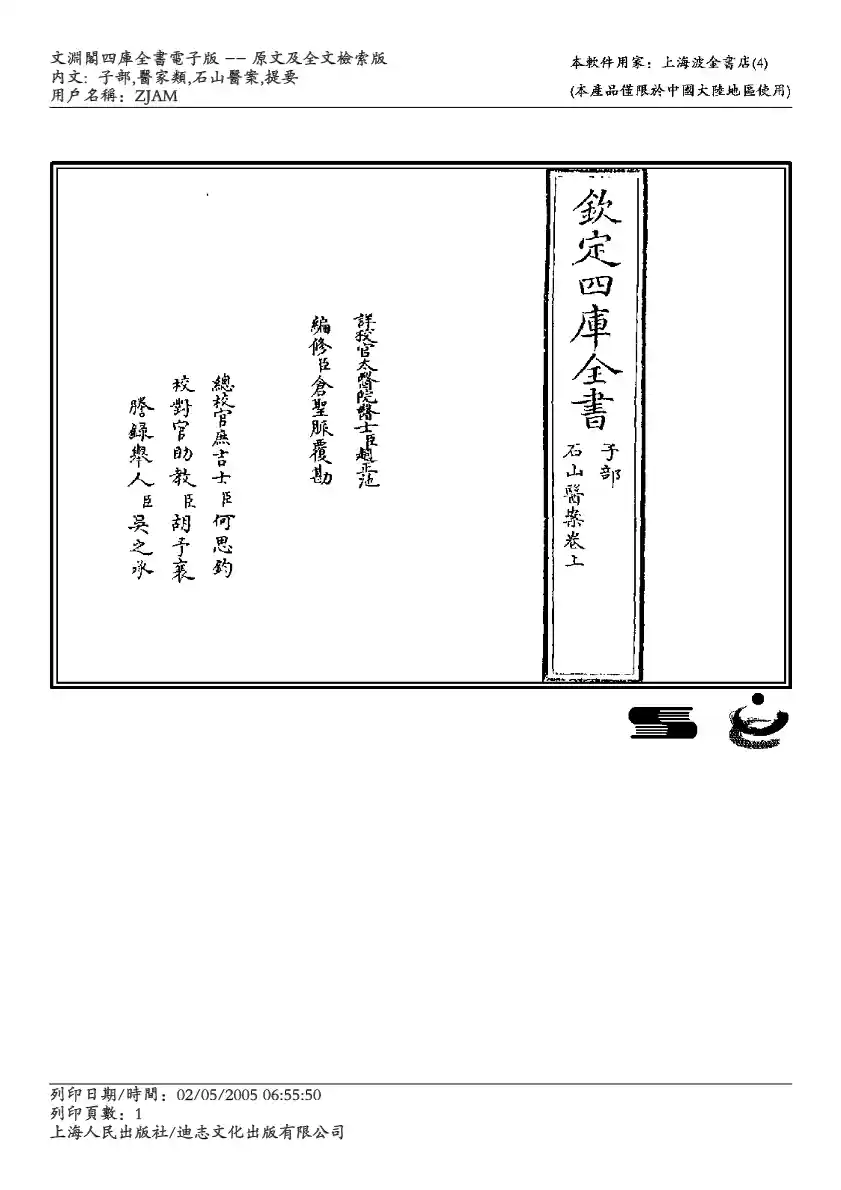 文淵閣四庫全書電子版 —— 原文及全文檢索版
内文: 子部,醫家類,石山醫案,提要
用戶名稱：ZJAM
本軟件用家：上海波金書店(4)
(本產品僅限於中國大陸地區使用)
欽定四庫全書
子部
石山醫案卷上
詳校官太醫院醫士臣趙正池
編修臣倉聖脈覆勘
總校官庶吉士臣何思鈞
校對官助教臣胡予襄
謄錄舉人臣吳之承
列印日期/時間：02/05/2005 06:55:50
列印頁數：1
上海人民出版社/迪志文化出版有限公司